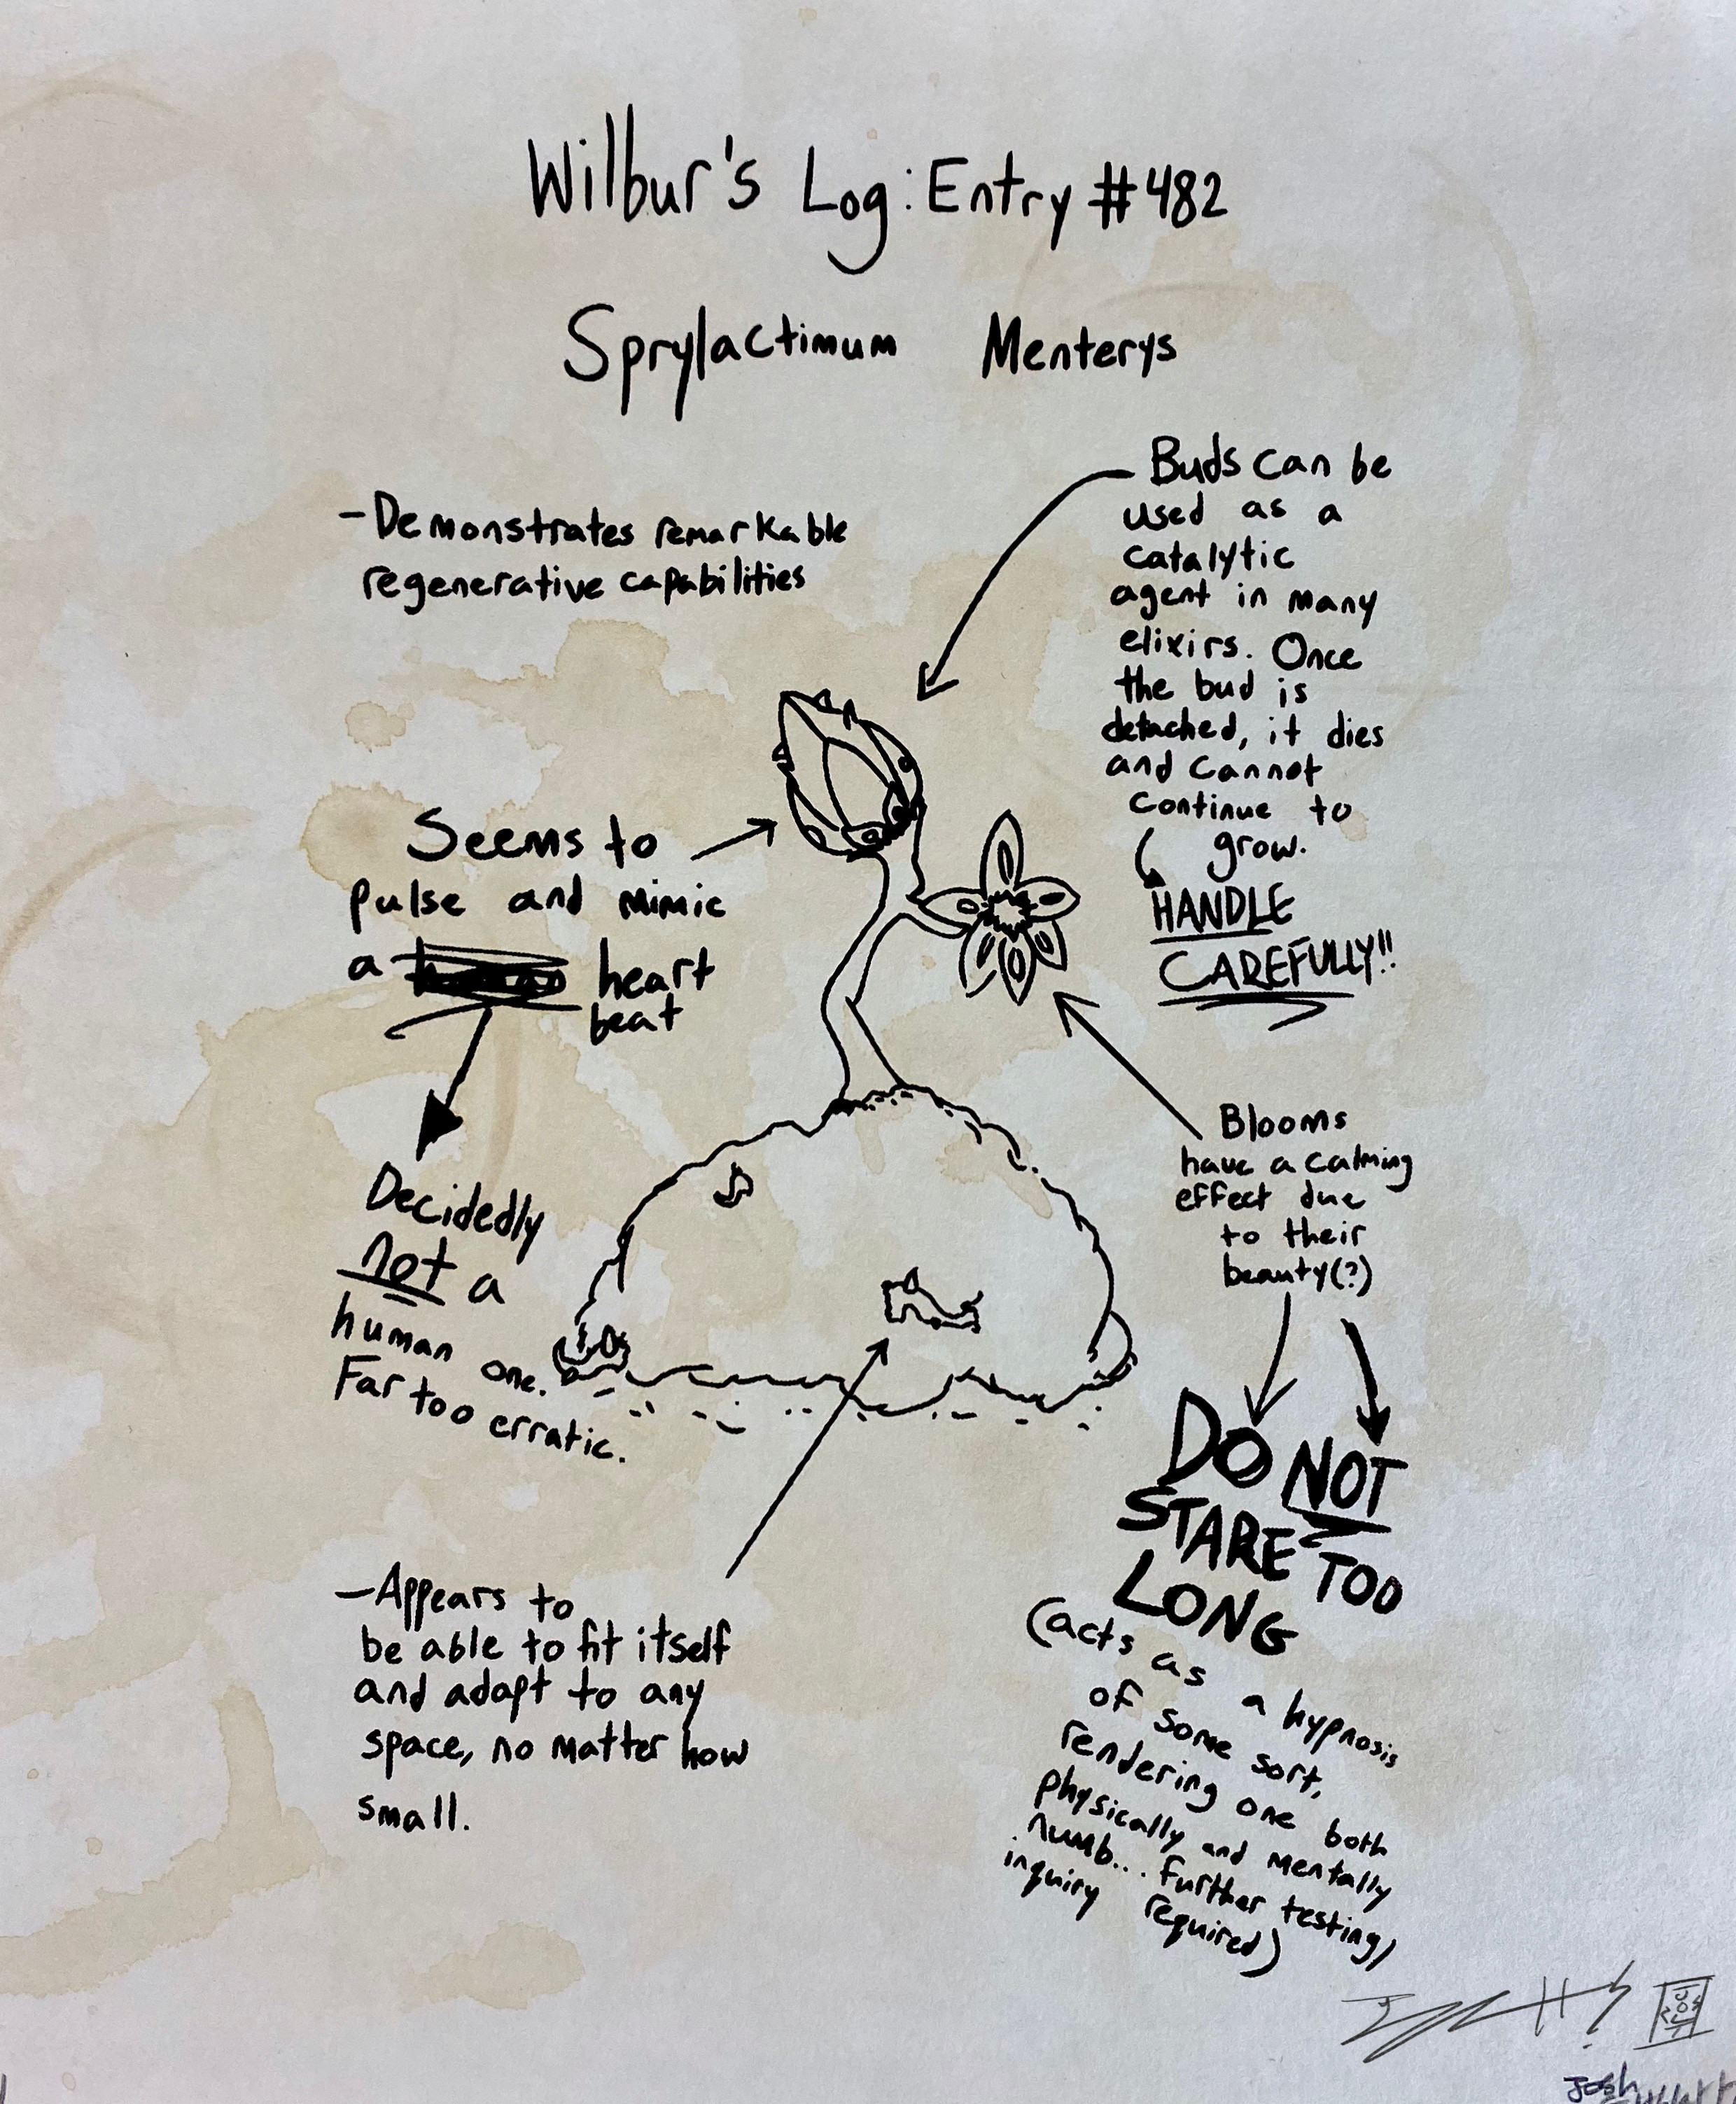 Wilbur's Log: Entry #482
Sprylactimum Menterys
-Demonstrates remarkable
regenerative capabilities
Buds can be
used as a
catalytic
agent in many
elixirs. Once
the bud is
detached, it dies
and cannot
continue to
grow.
HANDLE
CAREFULLY!!
Seems to
pulse and mimic
a heart
beat
Decidedly
not a
human one.
Far too erratic.
Blooms
have a calming
effect due
to their
beauty(?)
DO NOT
STARE TOO
LONG
(acts as a hypnosis
of some sort,
rendering one both
physically and mentally
numb... further testing/
inquiry required)
-Appears to
be able to fit itself
and adapt to any
space, no matter how
small.
Josh